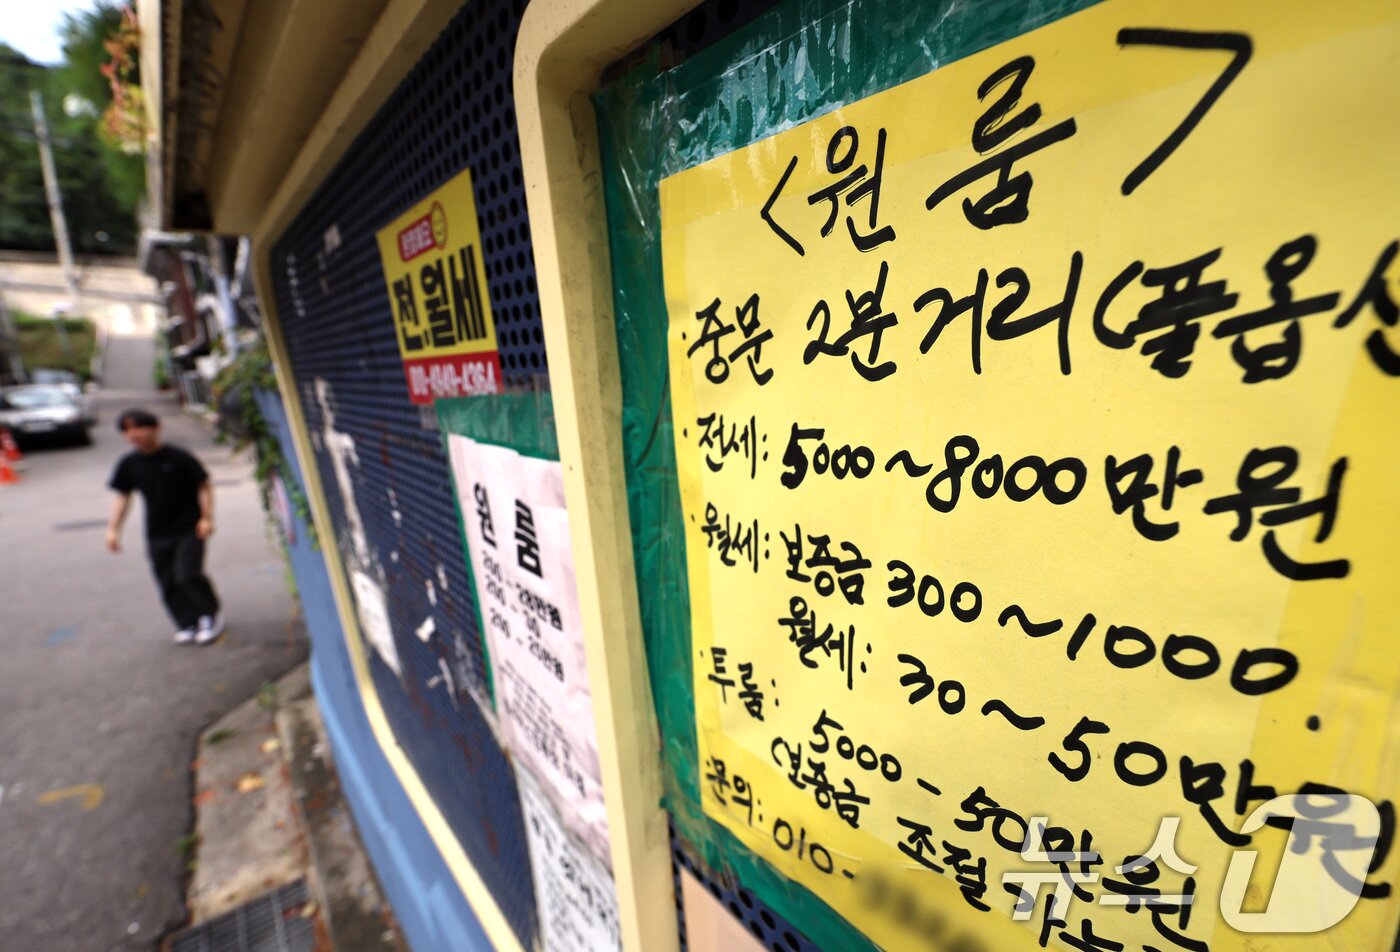 <원룸>
·중문 2분거리(풀옵션
·전세: 5000~8000만원
·월세: 보증금 300~1000.
월세: 30~50만원
·투룸: 5000-50만원
(보증금 조절 가능
·문의: 010-
전.월세
원룸
200-28만원
200-30
200-25만원
뉴스1